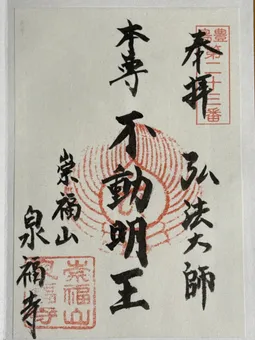 奉拝
豊島第二十三番
弘法大師
本尊
不動明王
崇福山
泉福寺
崇福山
泉福寺